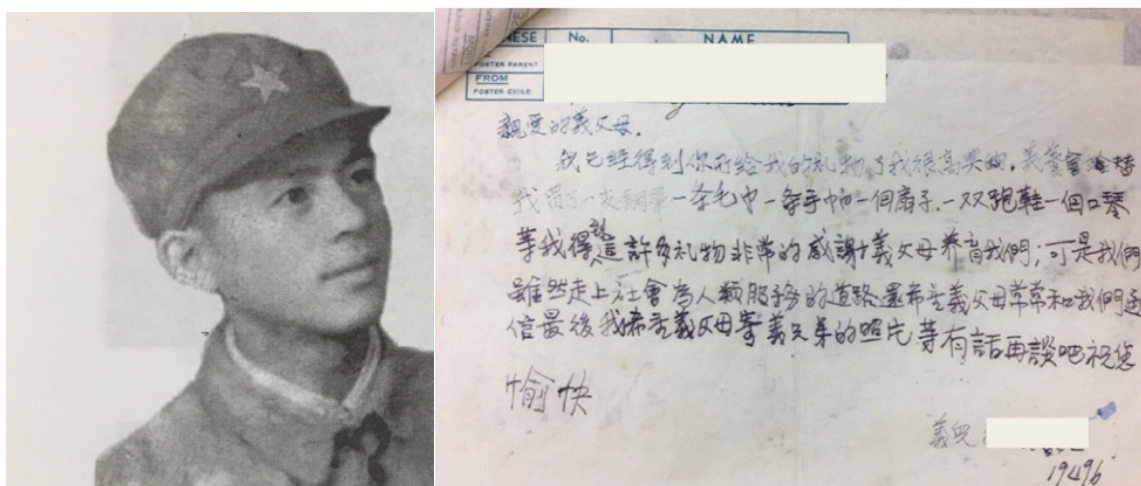 NESE No. NAME
FOSTER PARENT
FROM
FOSTER CHILD
親愛的義父母.
我已經得到你所給我的礼物了我很高興的,義童會給替
我買了一支鋼筆一条毛巾一条手巾一個扇子.一双跑鞋一個口琴
等我得到這許多礼物非常的感謝義父母养育我們;可是我們
雖然走上社會為人類服務的道路還希望義父母常常和我們通
信最後我希望義父母寄義兄弟的照片等有話再談吧祝您
愉快
義兒
19496